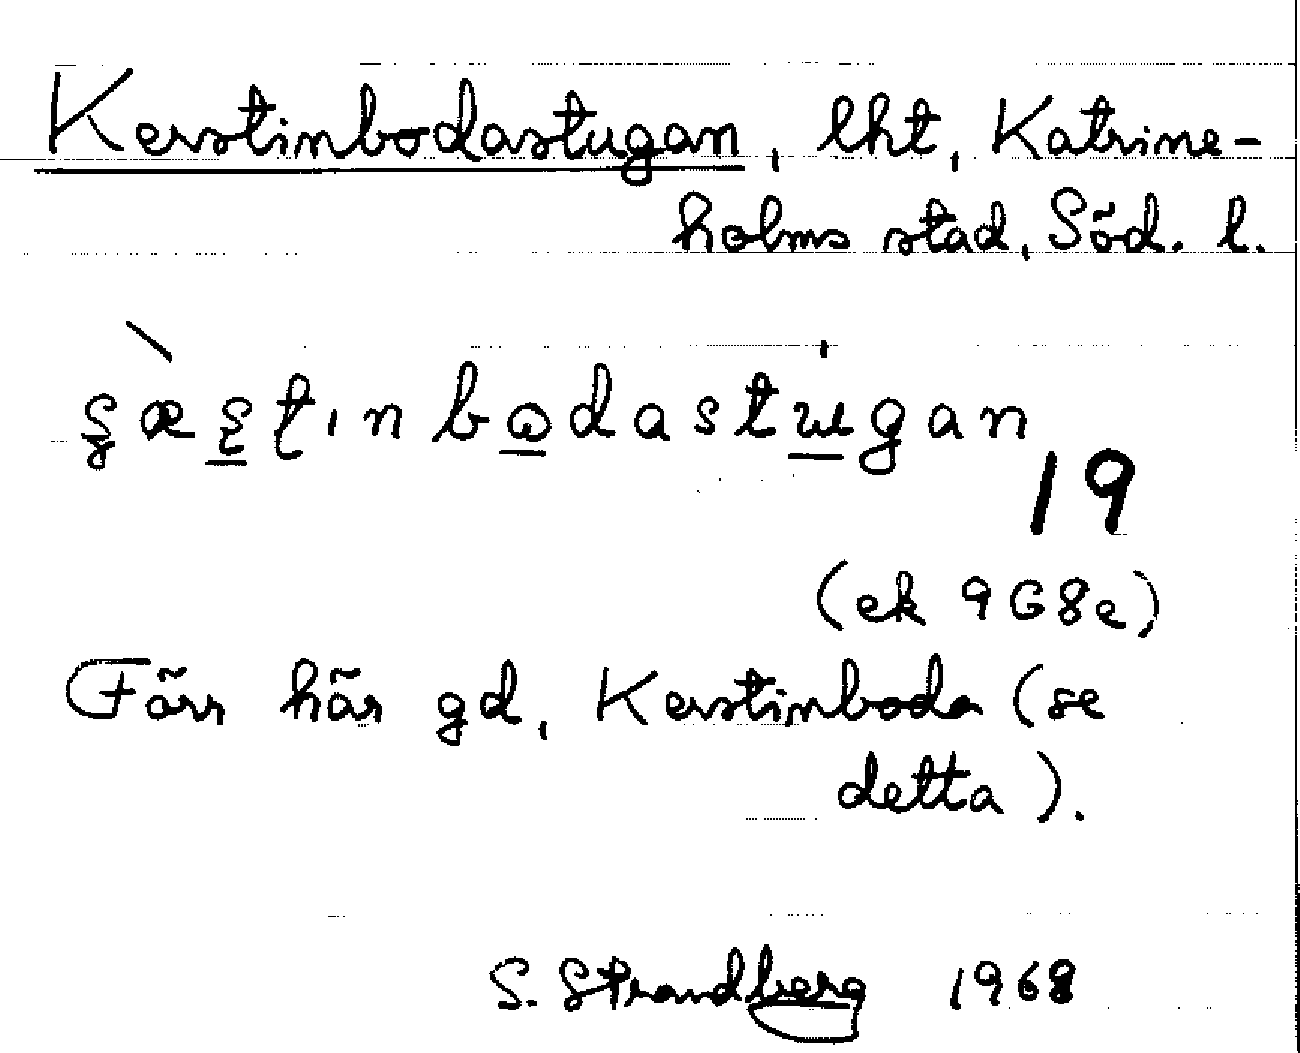 Kerstinbodastugan, lht, Katrine-
holms stad, Söd. l.
19
(ek 9G8e)
Förr här gd, Kerstinboda (se
detta).
S. Strandberg 1968